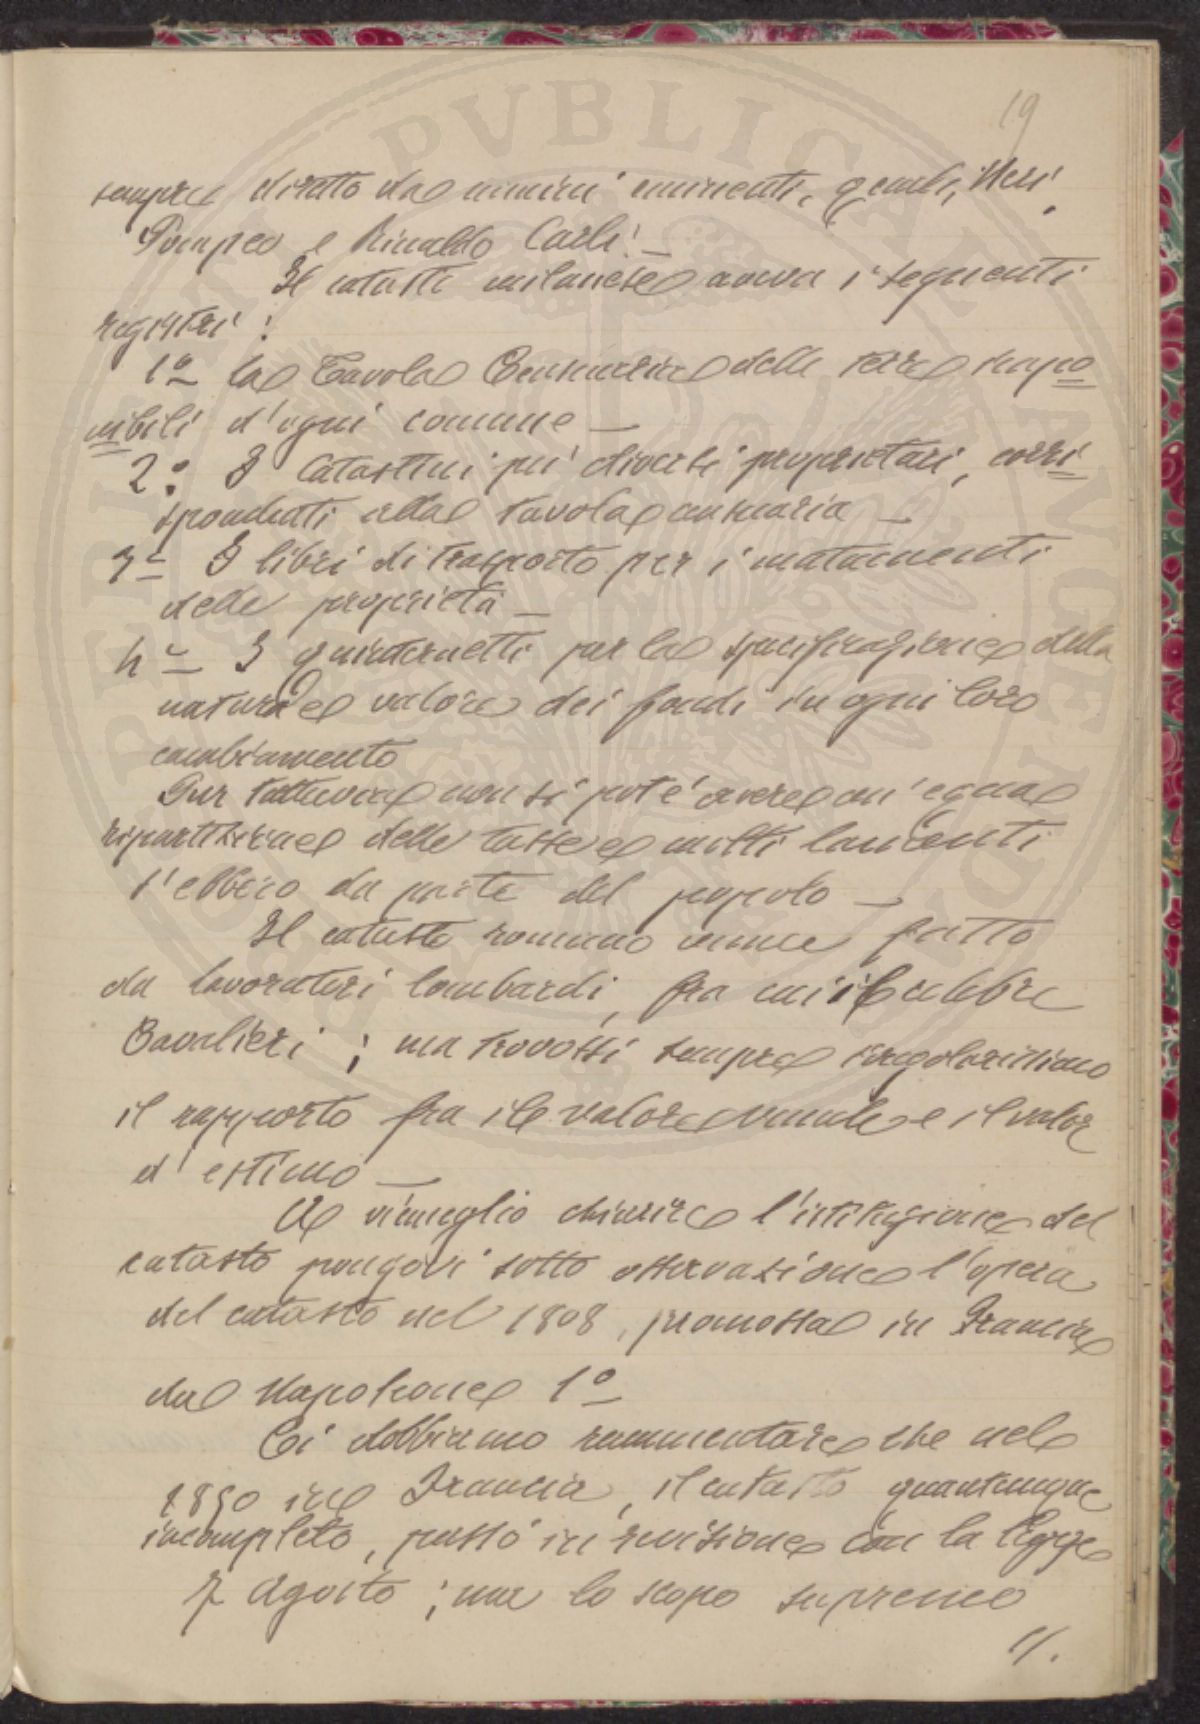 19
sempre diretto da uomini eminenti, quali, Neri,
Pompeo e Rinaldo Carli. —
Il catasto milanese aveva i seguenti
registri:
1º la Tavola Censuaria delle terre impo
nibili d'ogni comune —
2º I Catastini pei diversi proprietari, corri
spondenti alla tavola censuaria —
3º I libri di trasporto per i mutamenti
delle proprietà —
4º I quinternetti per la specificazione della
natura e valore dei fondi in ogni loro
cambiamento
Pur tuttavia non si poté avere un'equa
ripartizione delle tasse e molti lamenti
s'ebbero da parte del popolo —
Il catasto romano venne fatto
da lavoratori lombardi, fra cui il celebre
Cavalieri; ma trovossi sempre
il rapporto fra il valore venale e il valor
d'estimo —
A viemeglio chiarire l'istituzione del
catasto pongovi sotto osservazione l'opera
del catasto nel 1808, promossa in Francia
da Napoleone 1º
Ci dobbiamo rammentare che nel
1850 in Francia, il catasto quantunque
incompleto, passò in revisione con la legge
7 Agosto; ma lo scopo supremo
//.
PERIENT PVBLICA